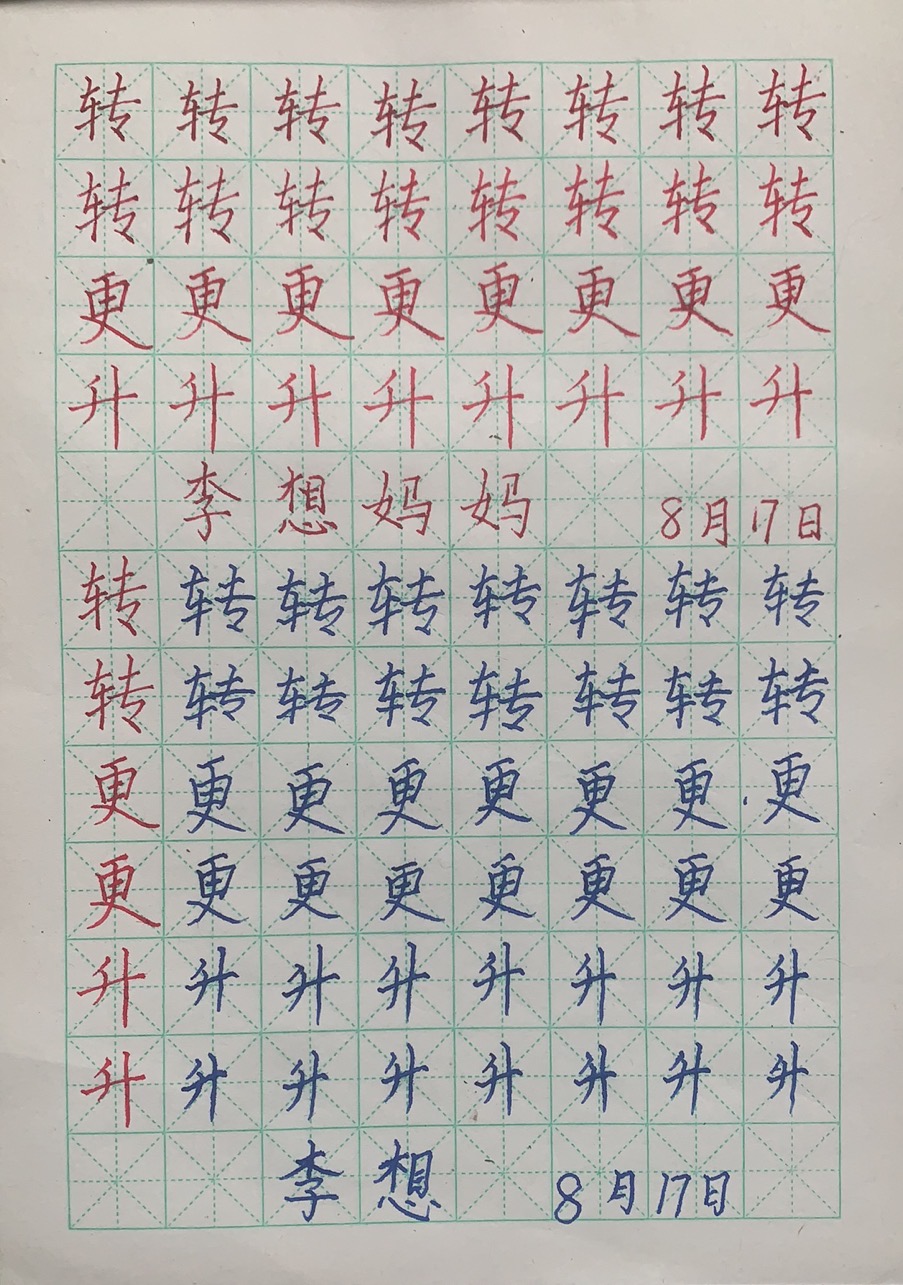 转转转转转转转转
转转转转转转转转
更更更更更更更更
升升升升升升升升
李想妈妈 8月17日
转转转转转转转转
转转转转转转转转
更更更更更更更更
更更更更更更更更
升升升升升升升升
升升升升升升升升
李想 8月17日